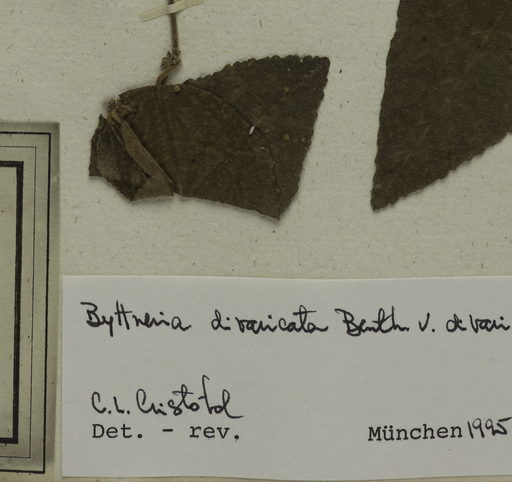 Byttneria divaricata Benth. v. divari
C.L. Cristóbal
Det. - rev.
München 1995